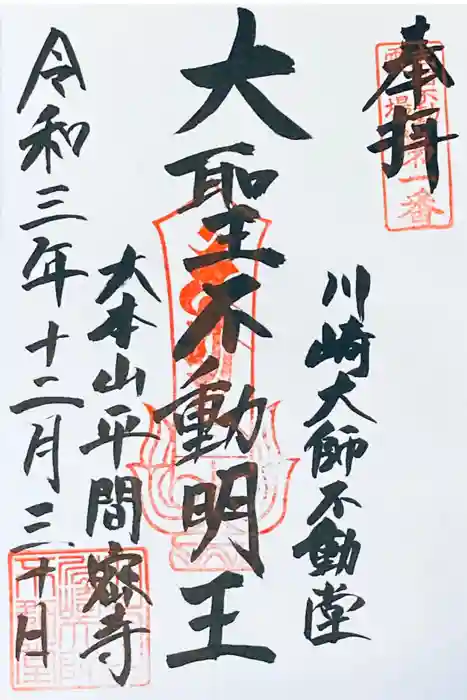 奉拝
川崎大師不動堂
大聖不動明王
大本山平間寺
令和三年十二月三十日